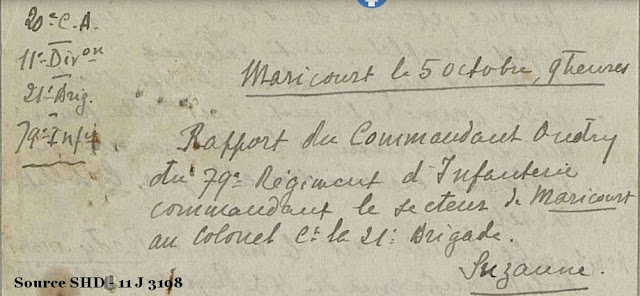 20e C.A.
11e Divon
21e Brig.
79e Infie
Maricourt le 5 octobre, 9 heures
Rapport du Commandant Oudry
du 79e Régiment d'Infanterie
commandant le secteur de Maricourt
au Colonel Ct la 21e Brigade.
Suzanne.
Source SHD - 11 J 3198